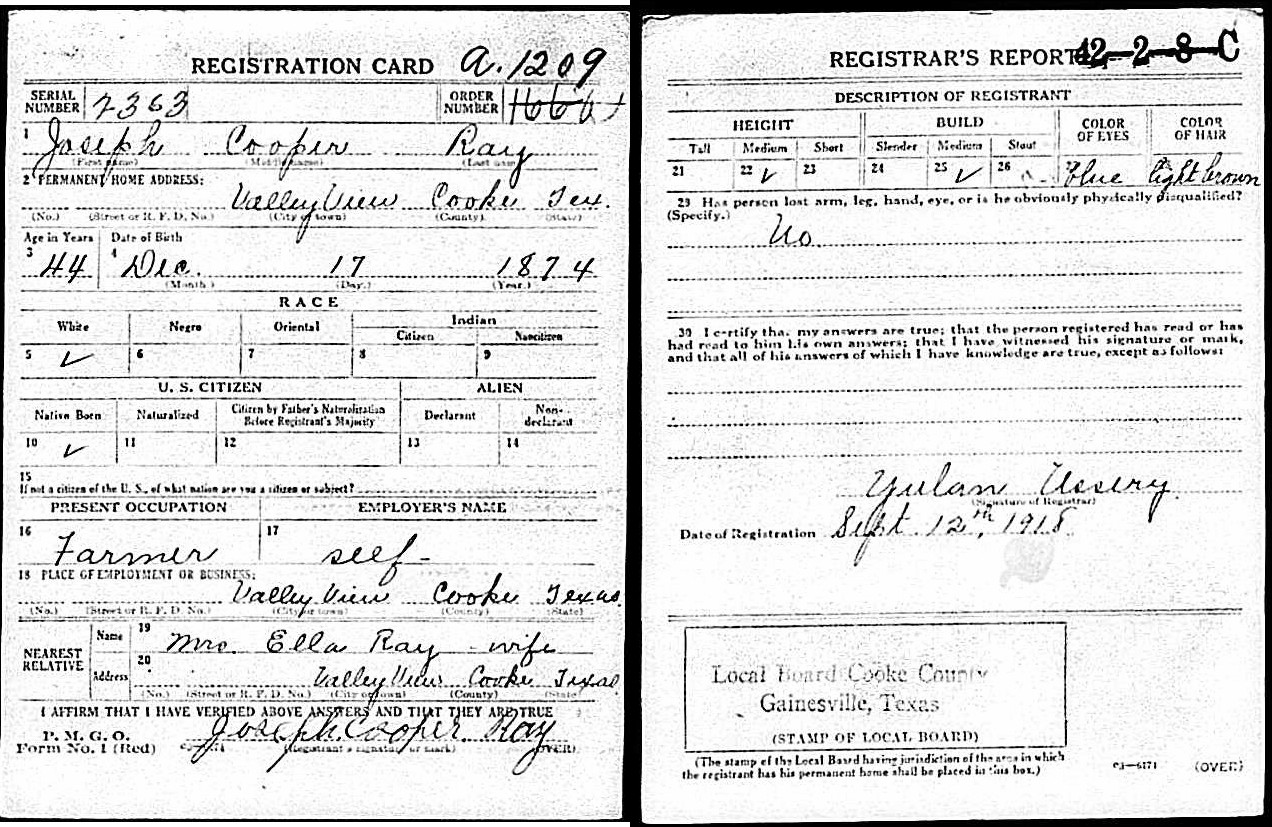 REGISTRATION CARD A.1209
SERIAL NUMBER 2363 ORDER NUMBER
1 Joseph Cooper Ray
(First name) (Middle name) (Last name)
2 PERMANENT HOME ADDRESS:
Valley View Cooke Tex.
(No.) (Street or R. F. D. No.) (City or town) (County) (State)
Age in Years Date of Birth
3 44 4 Dec. 17 1874
(Month.) (Day.) (Year.)
RACE
White Negro Oriental Indian
Citizen Noncitizen
5 ✓ 6 7 8 9
U. S. CITIZEN ALIEN
Native Born Naturalized Citizen by Father's Naturalization Before Registrant's Majority Declarant Non-declarant
10 ✓ 11 12 13 14
15
If not a citizen of the U. S., of what nation are you a citizen or subject?
PRESENT OCCUPATION EMPLOYER'S NAME
16 Farmer 17 self
18 PLACE OF EMPLOYMENT OR BUSINESS:
Valley View Cooke Texas
(No.) (Street or R. F. D. No.) (City or town) (County) (State)
NEAREST RELATIVE Name 19 Mrs. Ella Ray - wife
Address 20 Valley View Cooke Texas
(No.) (Street or R. F. D. No.) (City or town) (County) (State)
I AFFIRM THAT I HAVE VERIFIED ABOVE ANSWERS AND THAT THEY ARE TRUE
P. M. G. O.
Form No. 1 (Red) Joseph Cooper Ray
(Registrant's signature or mark) (OVER)
REGISTRAR'S REPORT 42-2-8-C
DESCRIPTION OF REGISTRANT
HEIGHT BUILD COLOR OF EYES COLOR OF HAIR
Tall Medium Short Slender Medium Stout
21 22 ✓ 23 24 25 ✓ 26 blue light brown
29 Has person lost arm, leg, hand, eye, or is he obviously physically disqualified?
(Specify.)
No
30 I certify that my answers are true; that the person registered has read or has
had read to him his own answers; that I have witnessed his signature or mark,
and that all of his answers of which I have knowledge are true, except as follows:
Yulan Ussery
(Signature of Registrar)
Date of Registration Sept. 12th, 1918.
Local Board Cooke County
Gainesville, Texas
(STAMP OF LOCAL BOARD)
(The stamp of the Local Board having jurisdiction of the area in which
the registrant has his permanent home shall be placed in this box.)
03-6171 (OVER)